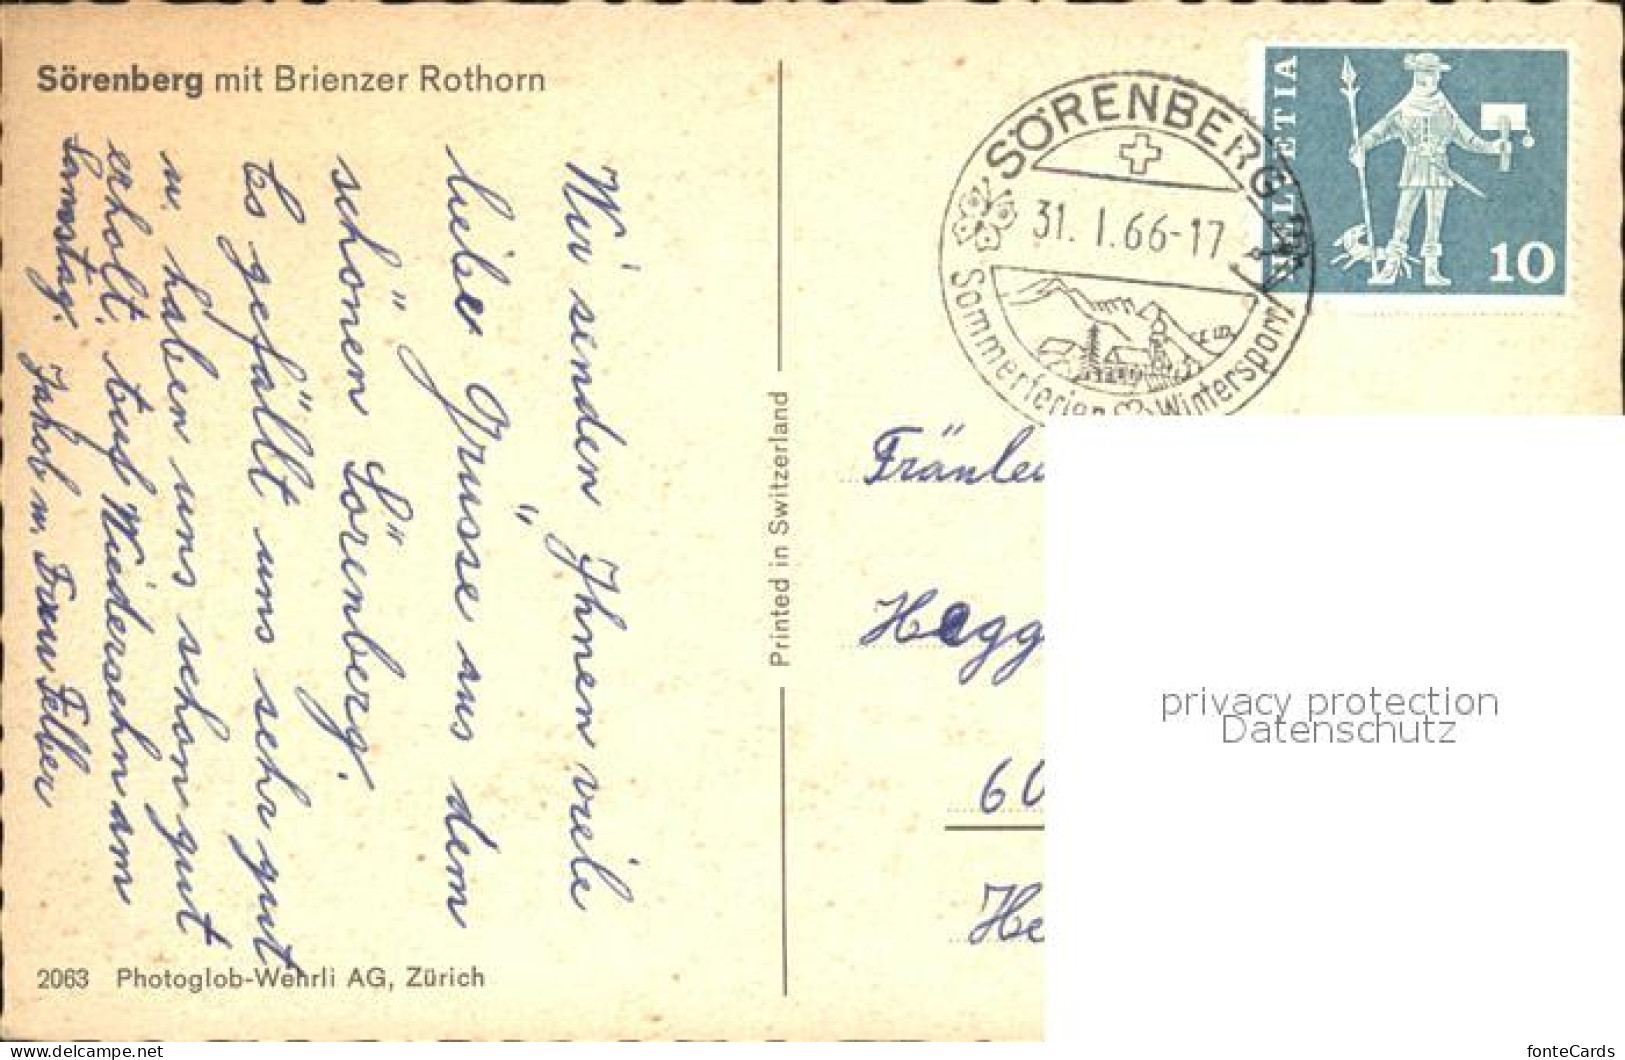 Sörenberg mit Brienzer Rothorn
Wir senden Ihnen viele
liebe Grüsse aus dem
schönen Sörenberg.
Es gefällt uns sehr gut
u. haben uns schon gut
erholt. Auf Wiedersehn am
Samstag.
Jakob u. Frau Felber
2063 Photoglob-Wehrli AG, Zürich
Printed in Switzerland
SÖRENBERG LU
31. I. 66-17
Sommerferien Wintersport
HELVETIA
10
Fräulei
Hegg
60
He
privacy protection
Datenschutz
fonteCards
www.delcampe.net